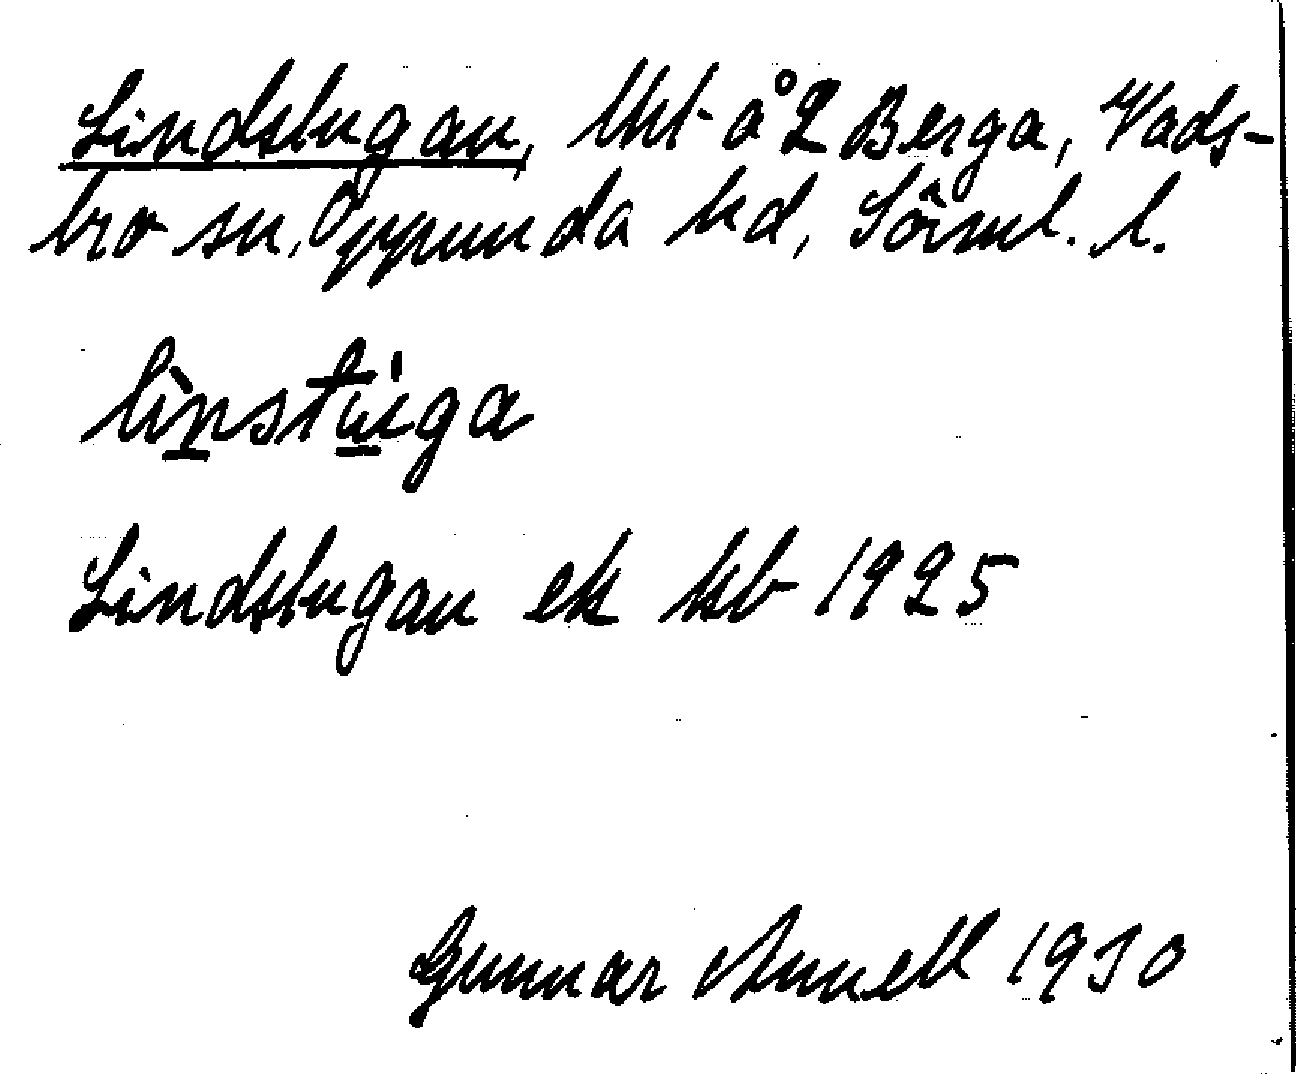 Lindstugan, lht å 2 Berga, Vads-
bro sn, Oppunda hd, Sörml. l.
lìnstu̇ga
Lindstugan ek kb 1925
Gunnar Annell 1930